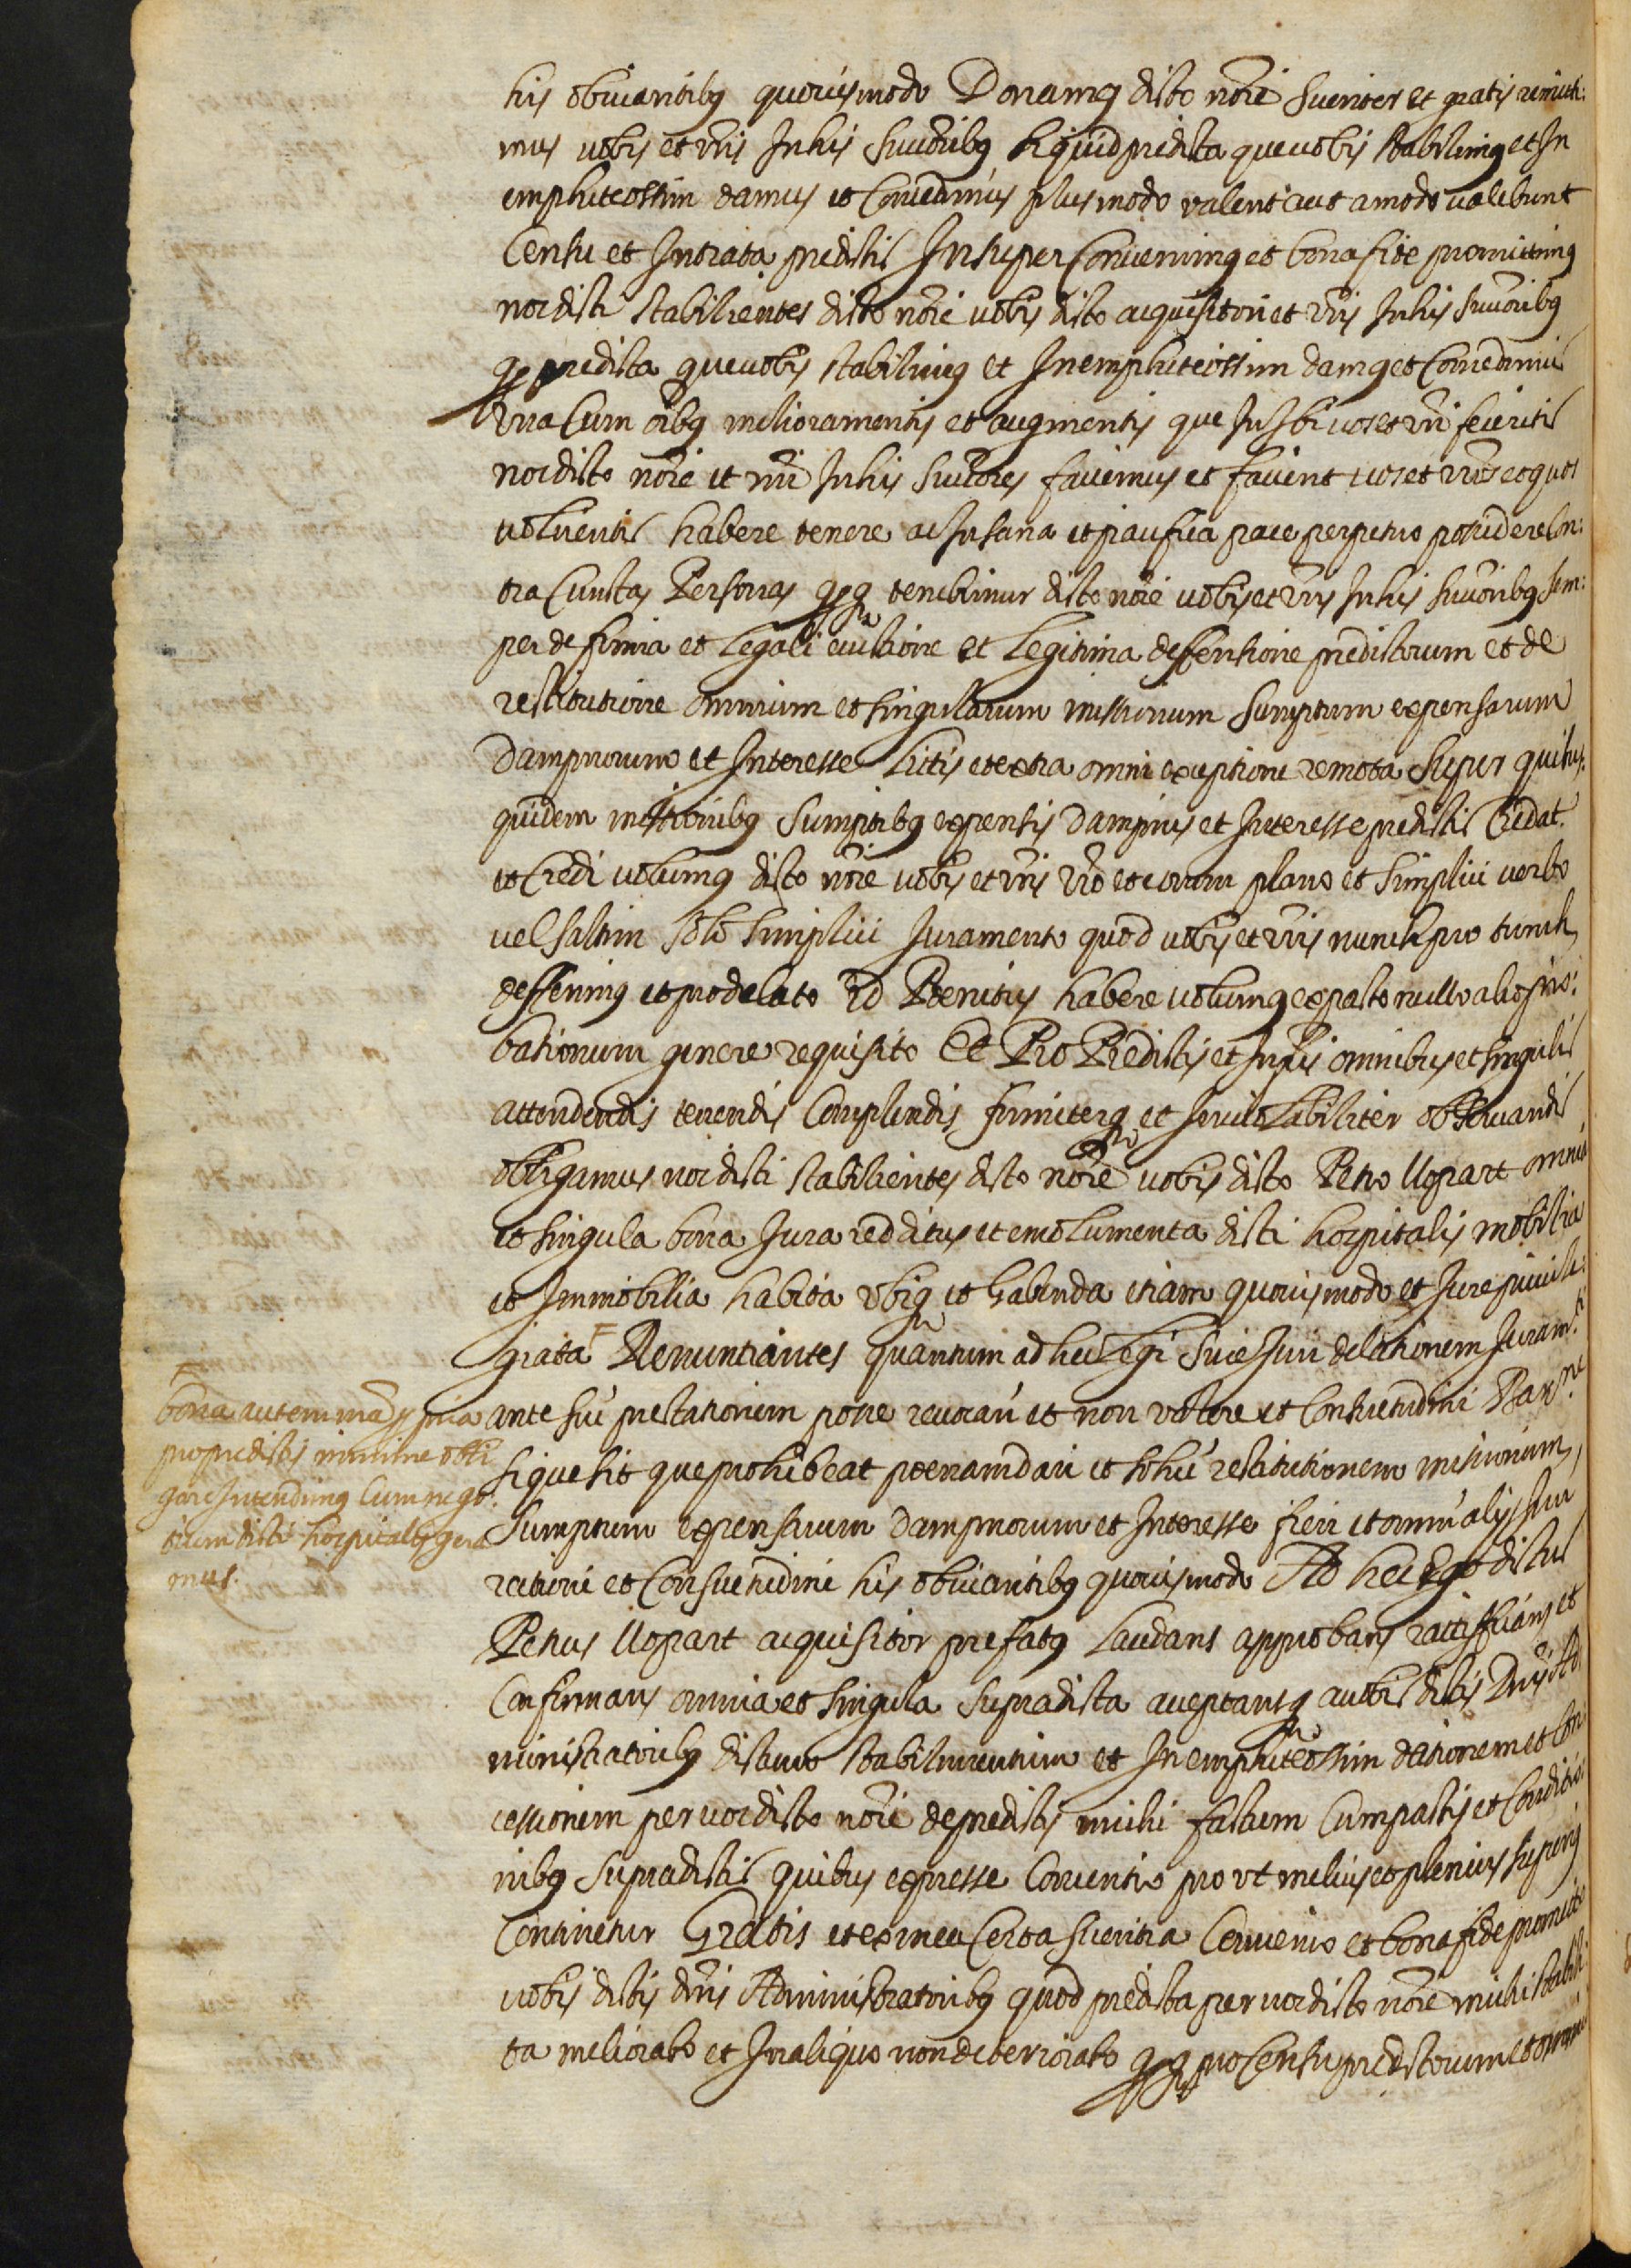 his obviantibus quovismodo Donamus dicto nõie Scienter et gratis remitti:
mus vobis et vr̃is In his Succ̃ribus Si quid predicta que vobis Stabilimus et In
emphiteossim damus et Concedimus plus modo valent aut amodo valebunt
Censu et Intrata predictis Insuper Convenimus et bona fide promittimus
nos dicti Stabilientes dicto nõie vobis dicto acquisitori et vr̃is In his Succ̃oribus
qp predicta que vobis stabilimus et In emphiteossim damus et Concedimus
Vna Cum oĩbus melioramentis et augmentis que In Ibi vos et vr̃i feceritis
nos dicto nõie et nr̃i In his Succ̃ores faciemus et facient vos et vr̃os et quos
volueritis habere tenere ac In sana et paciffica pace perpetuo possidere Con:
tra Cunctas Personas qp q tenebimur dicto nõie vobis et vr̃is In his Succ̃oribus Sem:
per de firma et Legali evictione et Legitima deffensione predictorum et de
restitutione omnium et singularum missionum Sumptuum expensarum
Dampnorum et Interesse Litis et extra omni exceptione remota Super quibus.
quidem missionibus Sumptibus expensis Dampnis et Interesse predictis Credat.
et Credi volumus dicto nõie vobis et vr̃is Vr̃o et eorum plano et Simplici verbo
vel saltim solo Simplici Juramento quod vobis et vr̃is nunch pro tunch
defferimus et pro delato id Penitus habere volumus ex pacto nullo alio pro:
bationum genere requisito Et Pro Predictis et Infr̃is omnibus et singulis
attendendis tenendis Complendis firmiterq et Inviolabiliter observandis
obligamus nos dicti stabilientes dicto nõie vobis dicto Petro Llopart omnia
et singula bona Jura redditus et emolumenta dicti hospitalis mobilia
et Immobilia habita vbiq et habenda etiam quovismodo et Jure privile:
giata Renuntiantes quantum ad hec Legi Sive Juri delationem Juram.ti
ante sui prestationem posse revocari et non valere et Consuetudini Bar.ne
si que sit que prohibeat poenam dari et sohii restitutionem missionum,
Sumptuum expensarum Dampnorum et Interesse fieri et omni alij Juri
rationi et Consuetudini his obviantibus quovismodo Ad hec Ego dictus
Petrus Llopart acquisitor prefatus Laudans approbans ratifficans et
Confirmans omnia et singula Supradicta acceptansq a vobis dictis Dñis Ad
ministratoribus dictum stabilimentum et In emphiteossim dationem et Con
cessionem per vos dicto nõie de predictis michi factam Cum pactis et Conditio
nibus Supradictis quibus expresse Consentio pro vt melius et plenius superius
Continetur Gratis et ex mea Certa Scientia Convenio et bona fide promitto
vobis dictis dñis Administratoribus quod predicta per vos dicto nõie michi stabili
ta meliorabo et In aliquo non deteriorabo qp q pro Censu predictorum et omni
bona autem mãq pria
pro predictis minime obli
gare Intendimus Cum nego:
tium dicti hospitalis gera
mus.